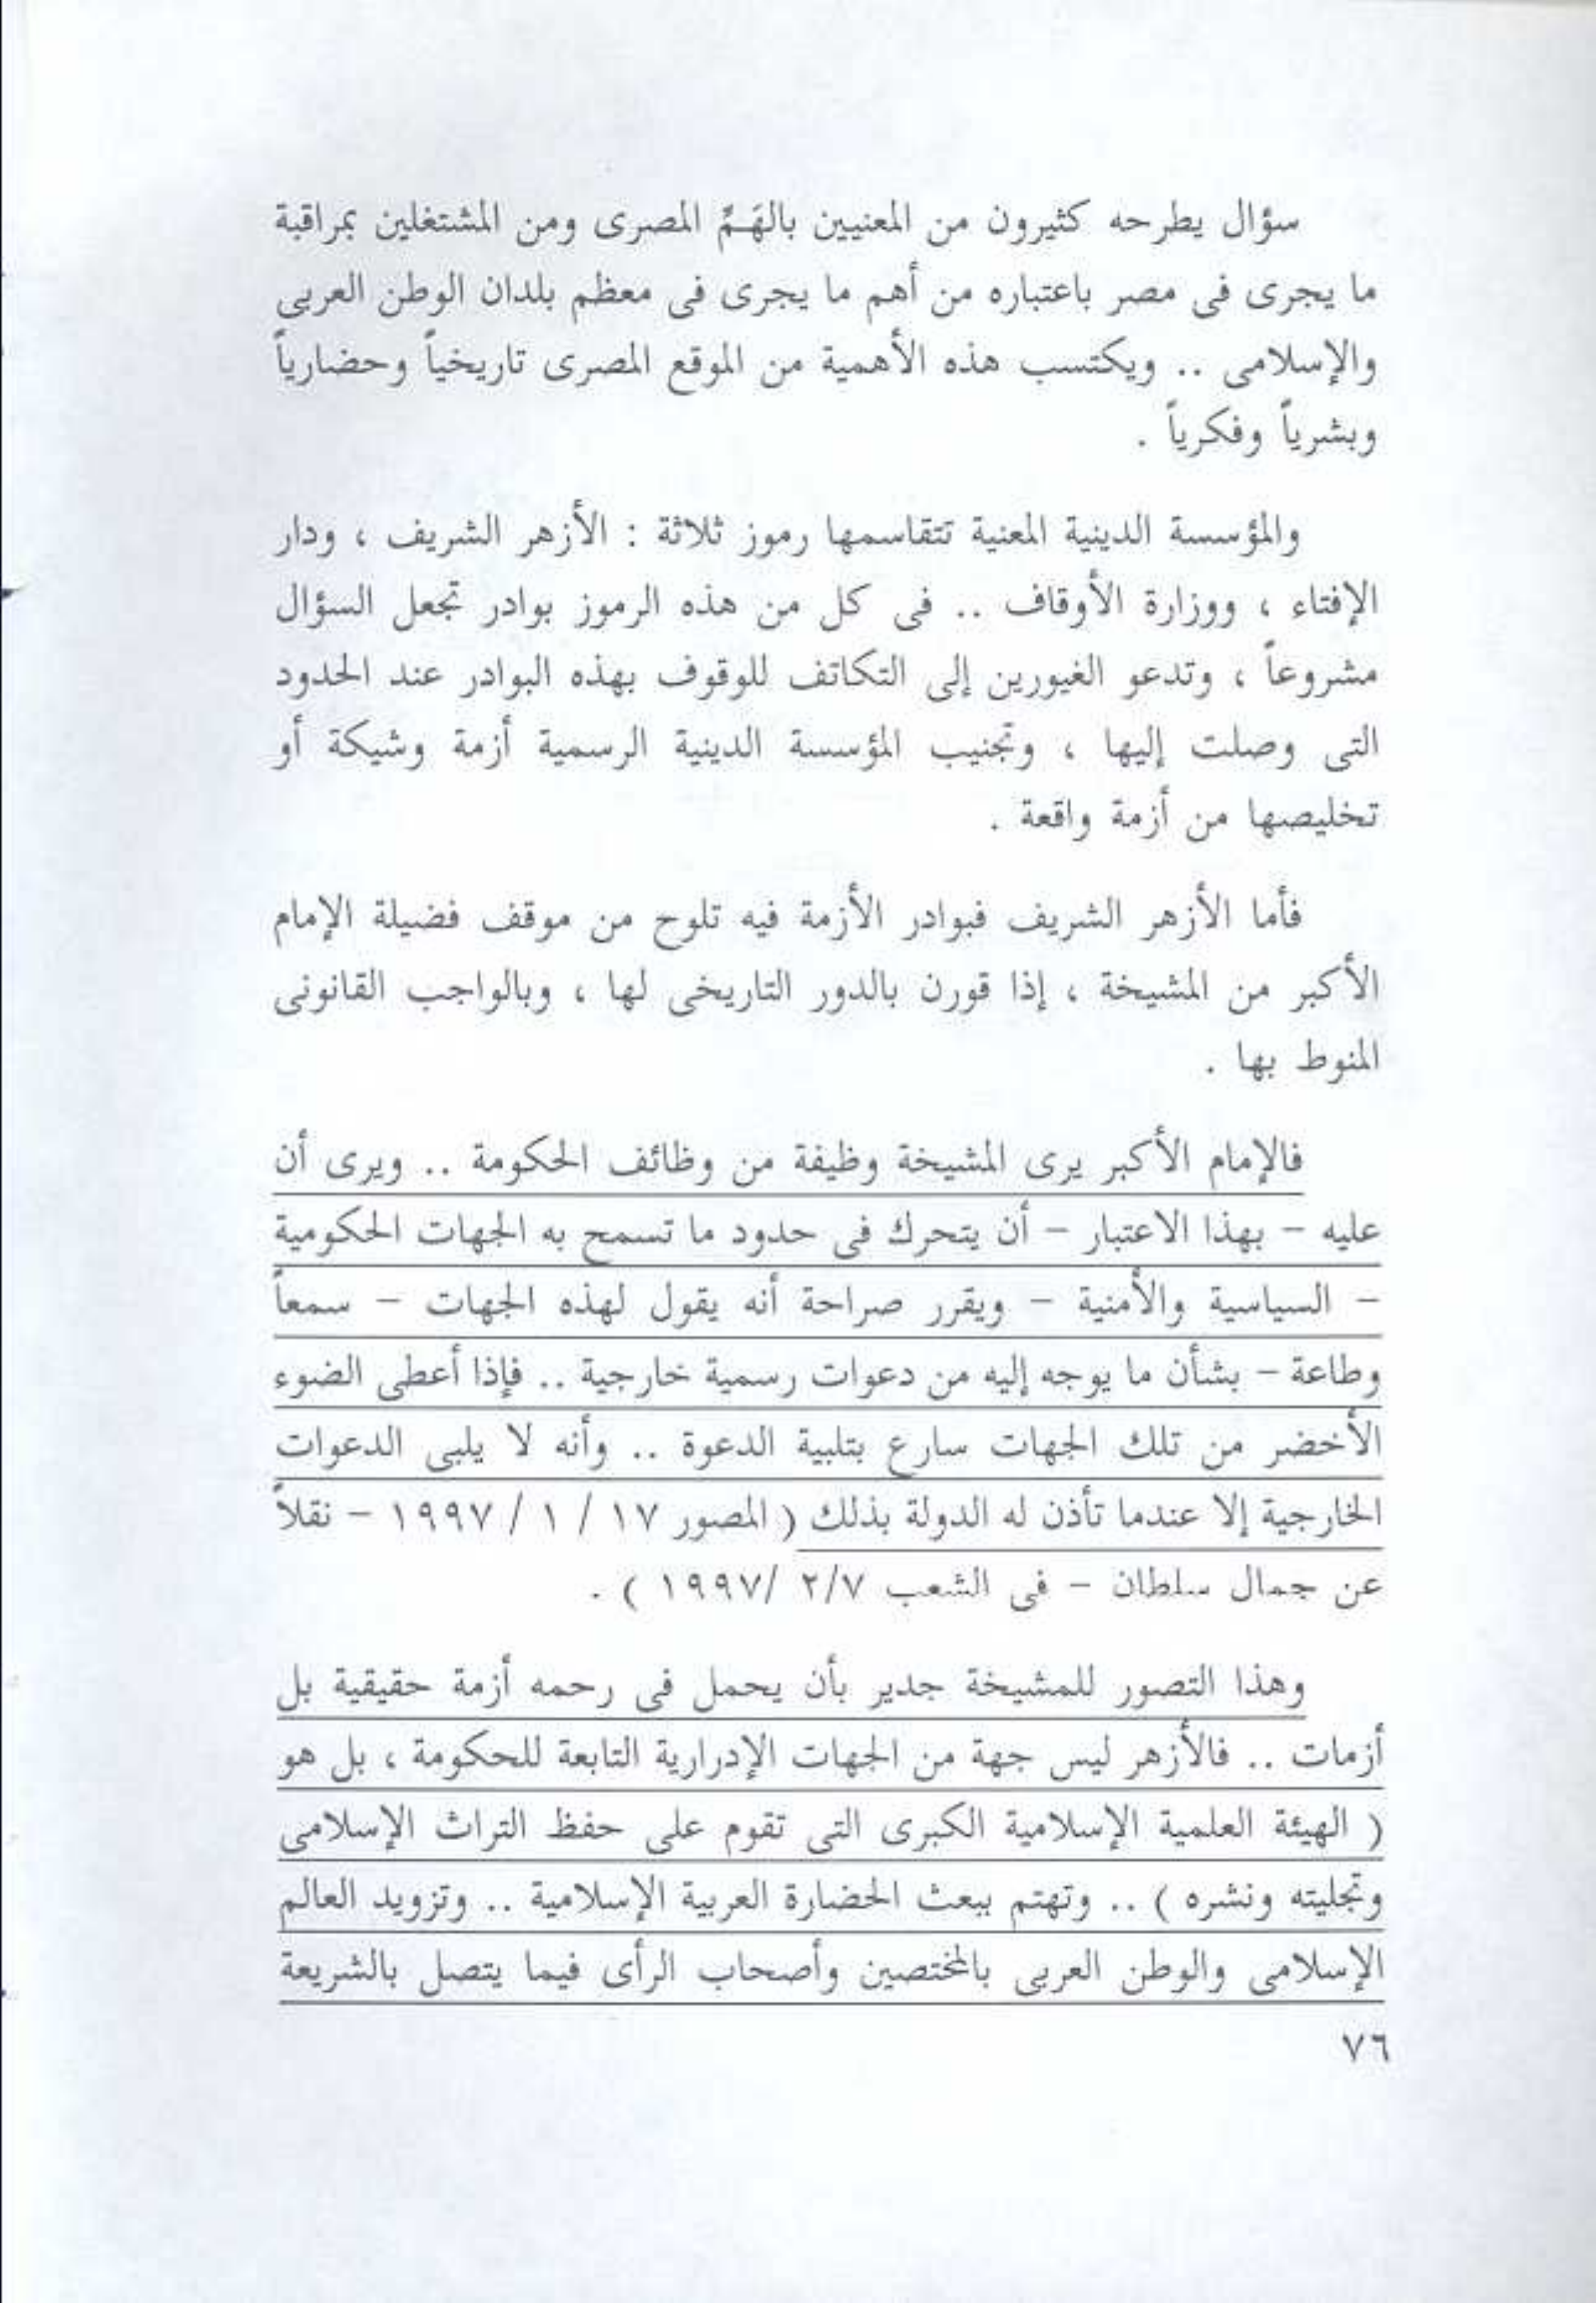 سؤال يطرحه كثيرون من المعنيين بالهَمِّ المصرى ومن المشتغلين بمراقبة
ما يجرى فى مصر باعتباره من أهم ما يجرى فى معظم بلدان الوطن العربى
والإسلامى .. ويكتسب هذه الأهمية من الموقع المصرى تاريخياً وحضارياً
وبشرياً وفكرياً .
والمؤسسة الدينية المعنية تتقاسمها رموز ثلاثة : الأزهر الشريف ، ودار
الإفتاء ، ووزارة الأوقاف .. فى كل من هذه الرموز بوادر تجعل السؤال
مشروعاً ، وتدعو الغيورين إلى التكاتف للوقوف بهذه البوادر عند الحدود
التى وصلت إليها ، وتجنيب المؤسسة الدينية الرسمية أزمة وشيكة أو
تخليصها من أزمة واقعة .
فأما الأزهر الشريف فبوادر الأزمة فيه تلوح من موقف فضيلة الإمام
الأكبر من المشيخة ، إذا قورن بالدور التاريخى لها ، وبالواجب القانونى
المنوط بها .
فالإمام الأكبر يرى المشيخة وظيفة من وظائف الحكومة .. ويرى أن
عليه – بهذا الاعتبار – أن يتحرك فى حدود ما تسمح به الجهات الحكومية
– السياسية والأمنية – ويقرر صراحة أنه يقول لهذه الجهات – سمعاً
وطاعة – بشأن ما يوجه إليه من دعوات رسمية خارجية .. فإذا أعطى الضوء
الأخضر من تلك الجهات سارع بتلبية الدعوة .. وأنه لا يلبى الدعوات
الخارجية إلا عندما تأذن له الدولة بذلك ( المصور ١٧ / ١ / ١٩٩٧ – نقلاً
عن جمال سلطان – فى الشعب ٢/٧ /١٩٩٧ ) .
وهذا التصور للمشيخة جدير بأن يحمل فى رحمه أزمة حقيقية بل
أزمات .. فالأزهر ليس جهة من الجهات الإدرارية التابعة للحكومة ، بل هو
( الهيئة العلمية الإسلامية الكبرى التى تقوم على حفظ التراث الإسلامى
وتجليته ونشره ) .. وتهتم ببعث الحضارة العربية الإسلامية .. وتزويد العالم
الإسلامى والوطن العربى بالمختصين وأصحاب الرأى فيما يتصل بالشريعة
٧٦